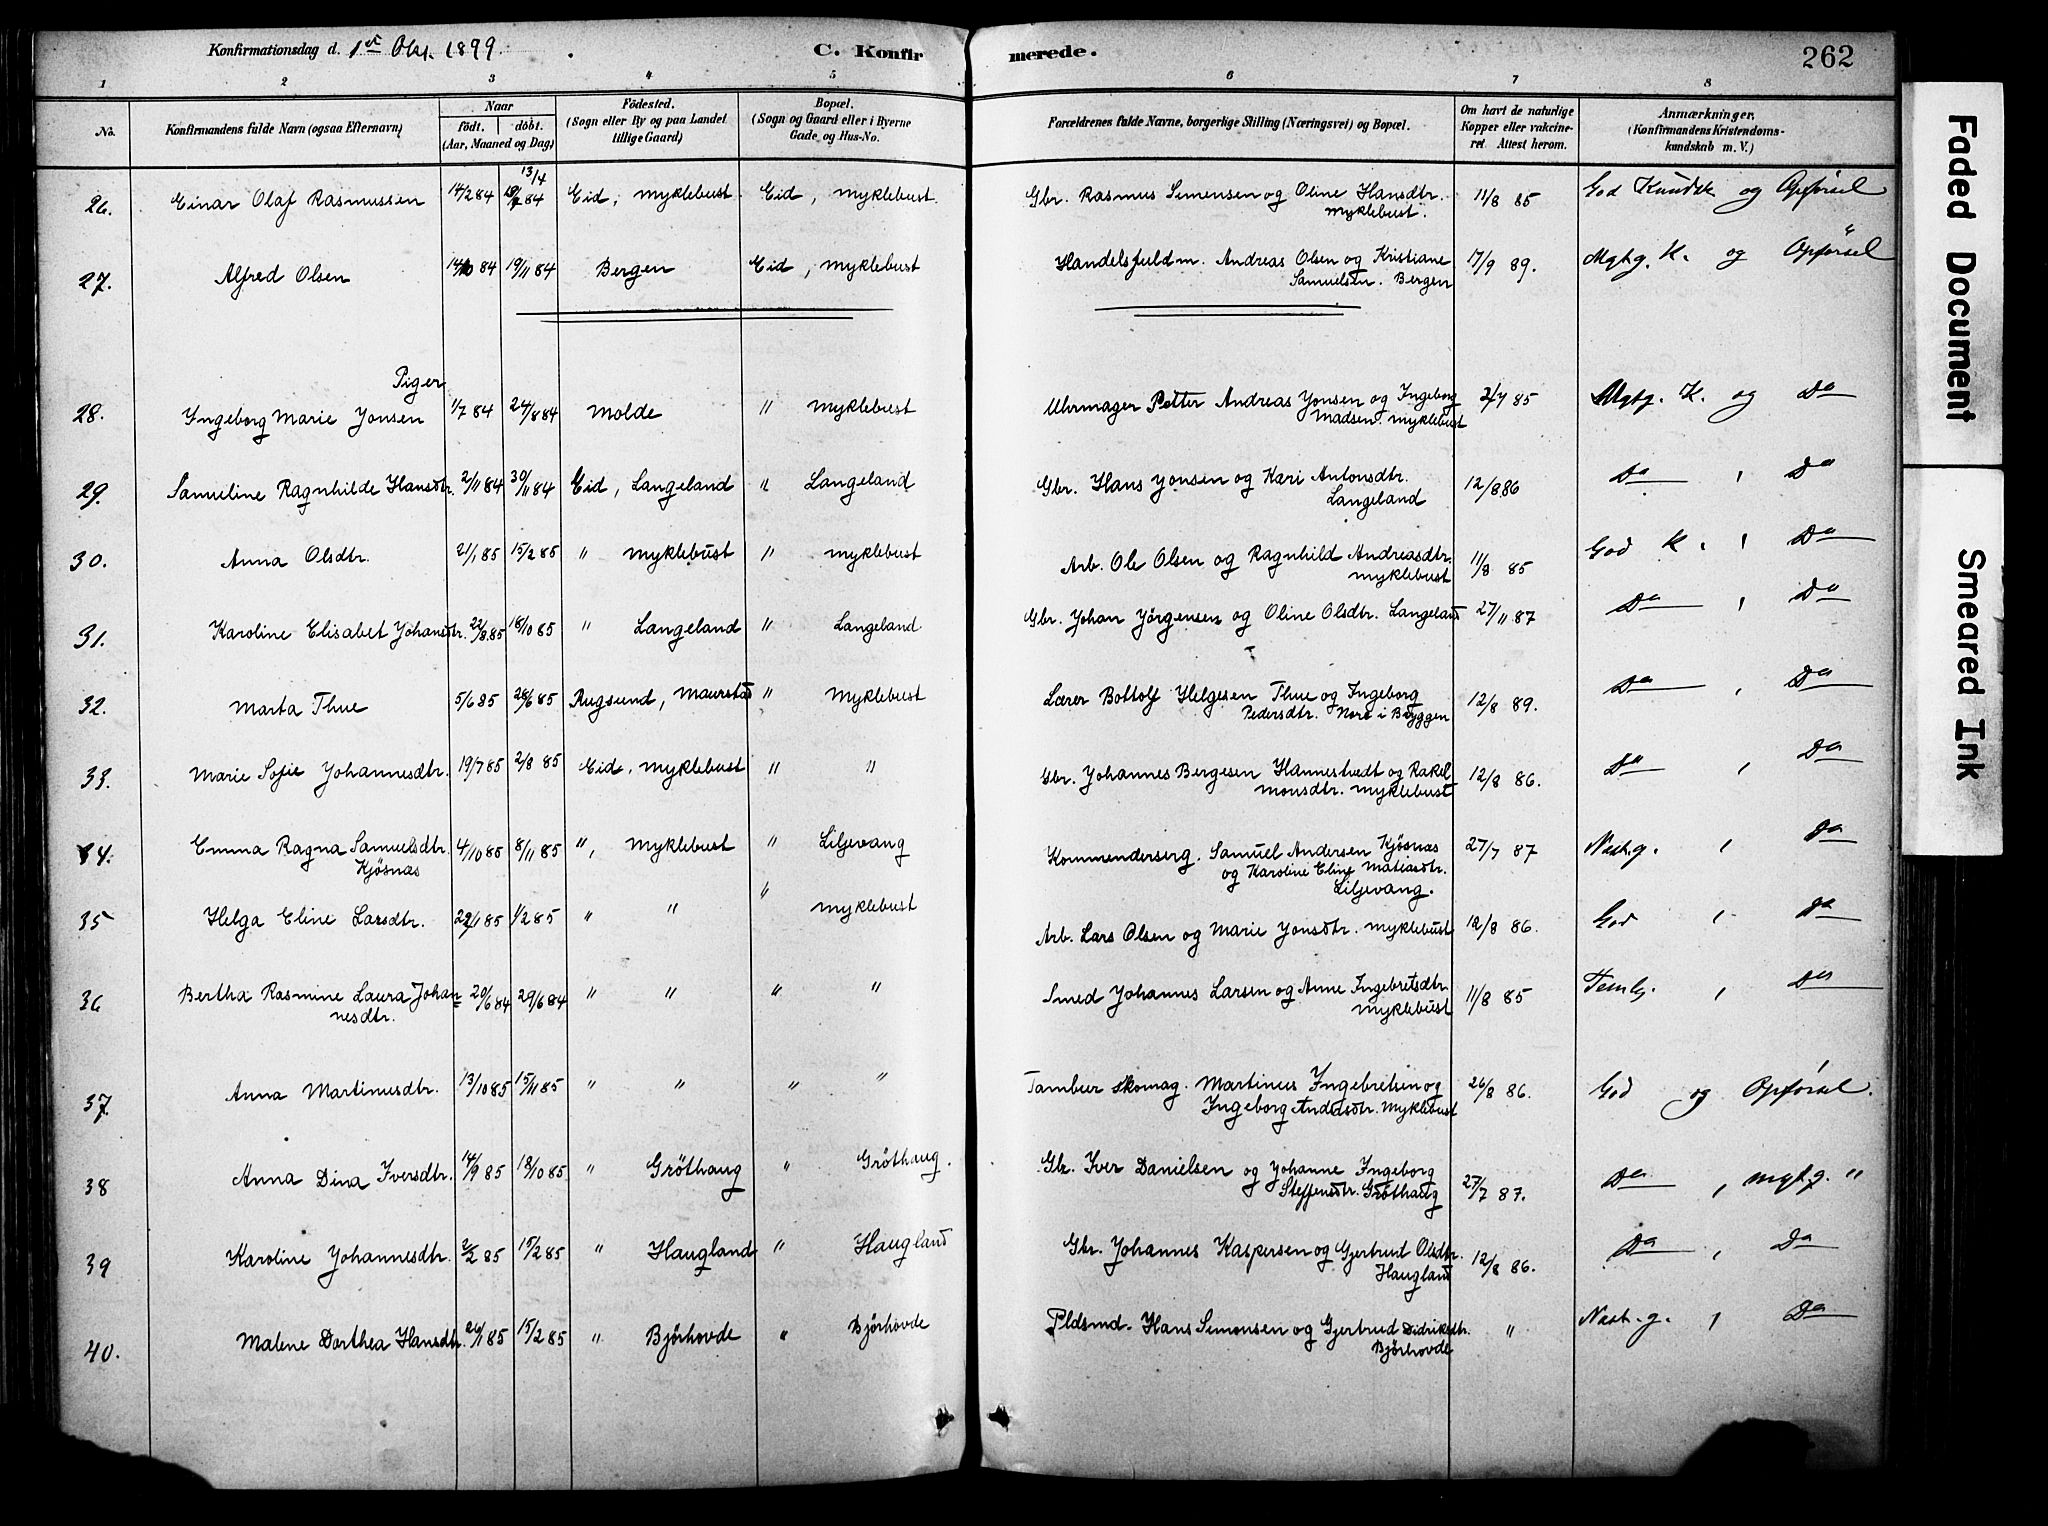 Konfirmationsdag d. 1ste Okt. 1899. C. Konfirmerede. 262
1 2 3 4 5 6 7 8
No. Konfirmandens fulde Navn (ogsaa Efternavn) Naar födt. döbt. (Aar, Maaned og Dag) Födested. (Sogn eller By og paa Landet tillige Gaard) Bopæl. (Sogn og Gaard eller i Byerne Gade og Hus-No. Forældrenes fulde Navne, borgerlige Stilling (Næringsvei) og Bopæl. Om havt de naturlige Kopper eller vakcineret Attest herom. Anmærkninger. (Konfirmandens Kristendomskundskab m. V.)
26. Einar Olaf Rasmussen 14/2 84 13/4 84 Eid, Myklebust Eid, Myklebust. Gbr. Rasmus Simensen og Oline Hansdtr. Myklebust. 11/8 85 God Kundsk og Opførsel
27. Alfred Olsen 14/10 84 19/11 84 Bergen Eid, Myklebust Handelsfuldm. Andreas Olsen og Kristiane Samuelsen. Bergen 17/9 89. Mgtg. K. og Opførsel
Piger
28. Ingeborg Marie Jonsen 1/7 84 24/8 84 Molde " Myklebust Uhrmager Petter Andreas Jonsen og Ingeborg Madsen. Myklebust 2/7 85 Mgtg. K. og Do
29. Samueline Ragnhilde Hansdtr. 2/11 84 30/11 84 Eid, Langeland " Langeland Gbr. Hans Jonsen og Kari Antonsdtr. Langeland 12/8 86 Do " Do
30. Anna Olsdtr. 21/1 85 15/2 85 " Myklebust " Myklebust Arb. Ole Olsen og Ragnhild Andreasdtr. Myklebust 11/8 85 God K. " Do
31. Karoline Elisabet Johansdtr. 22/8 85 18/10 85 " Langeland " Langeland Gbr. Johan Jörgensen og Oline Olsdtr. Langeland 27/11 87 Do " Do
32. Marta Thue 5/6 85 28/6 85 Rugsund, Maurstad " Myklebust Lærer Bottolf Helgesen Thue og Ingeborg Pedersdtr. Nore i Bryggen 12/8 89. Do " Do
33. Marie Sofie Johannesdtr. 19/7 85 2/8 85 Eid, Myklebust " " Gbr. Johannes Bergesen Hannestvedt og Rakel Monsdtr. Myklebust 12/8 86. Do " Do
34. Emma Ragna Samuelsdtr. Kjösnæs 4/10 85 8/11 85 ", Myklebust " Liljevang Kommanderserg. Samuel Andersen Kjösnæs og Karoline Eline Matiasdtr. Liljevang. 27/7 87 Nast.g. " Do
35 Helga Eline Larsdtr. 22/1 85 1/2 85 " " " Myklebust Arb. Lars Olsen og Marie Jonsdtr. Myklebust 12/8 86. God " Do
36 Bertha Rasmine Laura Johannesdtr. 20/6 84 29/6 84 " " " " Smed Johannes Larsen og Anne Ingebretsdtr Myklebust 11/8 85 Temlg. " Do
37 Anna Martinusdtr. 13/10 85 15/11 85 " " " " Tambur Skomag. Martinus Ingebretsen og Ingeborg Andersdtr. Myklebust 26/8 86. God og Opførsel.
38 Anna Dina Iversdtr. 14/9 85 18/10 85 " Gröthaug " Gröthaug. Gbr. Iver Danielsen og Johanne Ingeborg Steffensdtr. Gröthaug 27/7 87. Do " mgt.g. "
39 Karoline Johannesdtr. 2/2 85 15/2 85 " Haugland " Haugland Gbr. Johannes Kaspersen og Gjertrud Olsdtr. Haugland 12/8 86. Do " Do
40. Malene Dorthea Hansdtr. 26/1 85 15/2 85 " Björhovde " Björhovde Pldsmd. Hans Simonsen og Gjertrud Didriksdtr. Björhovde " Nast.g. " Do
Faded Document
Smeared Ink